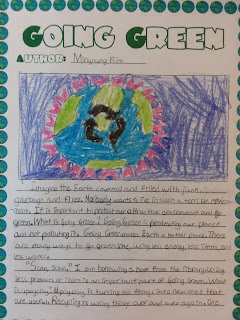 GOING GREEN
AUTHOR: Kim
Imagine the Earth covered and filled with junk,
garbage and flies. Nobody wants to live in such a terrible environ-
ment. It is important to protect our attractive environment and go
green. What is Going Green? Going Green is protecting our planet
and not polluting it. Going Green makes Earth a better place. There
are many ways to go green like, using less energy, less items, and
less water.
"Scan, Scan." I am borrowing a book from the library. Using
less products or items is an important part of Going Green. What
is upcycling? Upcycling is turning old things into new ones that
are useful. Recycling is using things over and over again. One